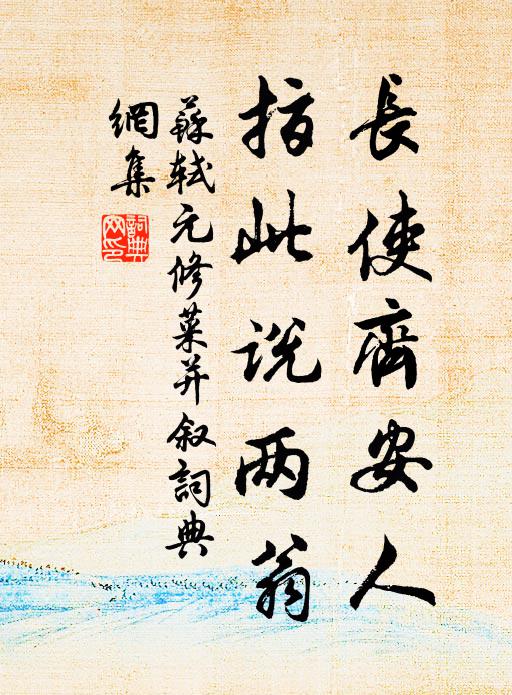 長使齊安人
指此說两翁
蘇軾元修菜并叙詞典
網集
詞典
网印